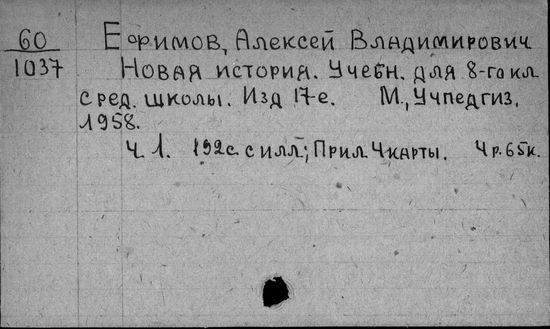 60
1037
Ефимов, Алексей Владимирович
Новая история. Учебн. для 8-го кл
сред. школы. Изд 17-е. М., Учпедгиз,
1958.
Ч. 1. 192с. с илл; Прил. 4карты. 4р. 65к.